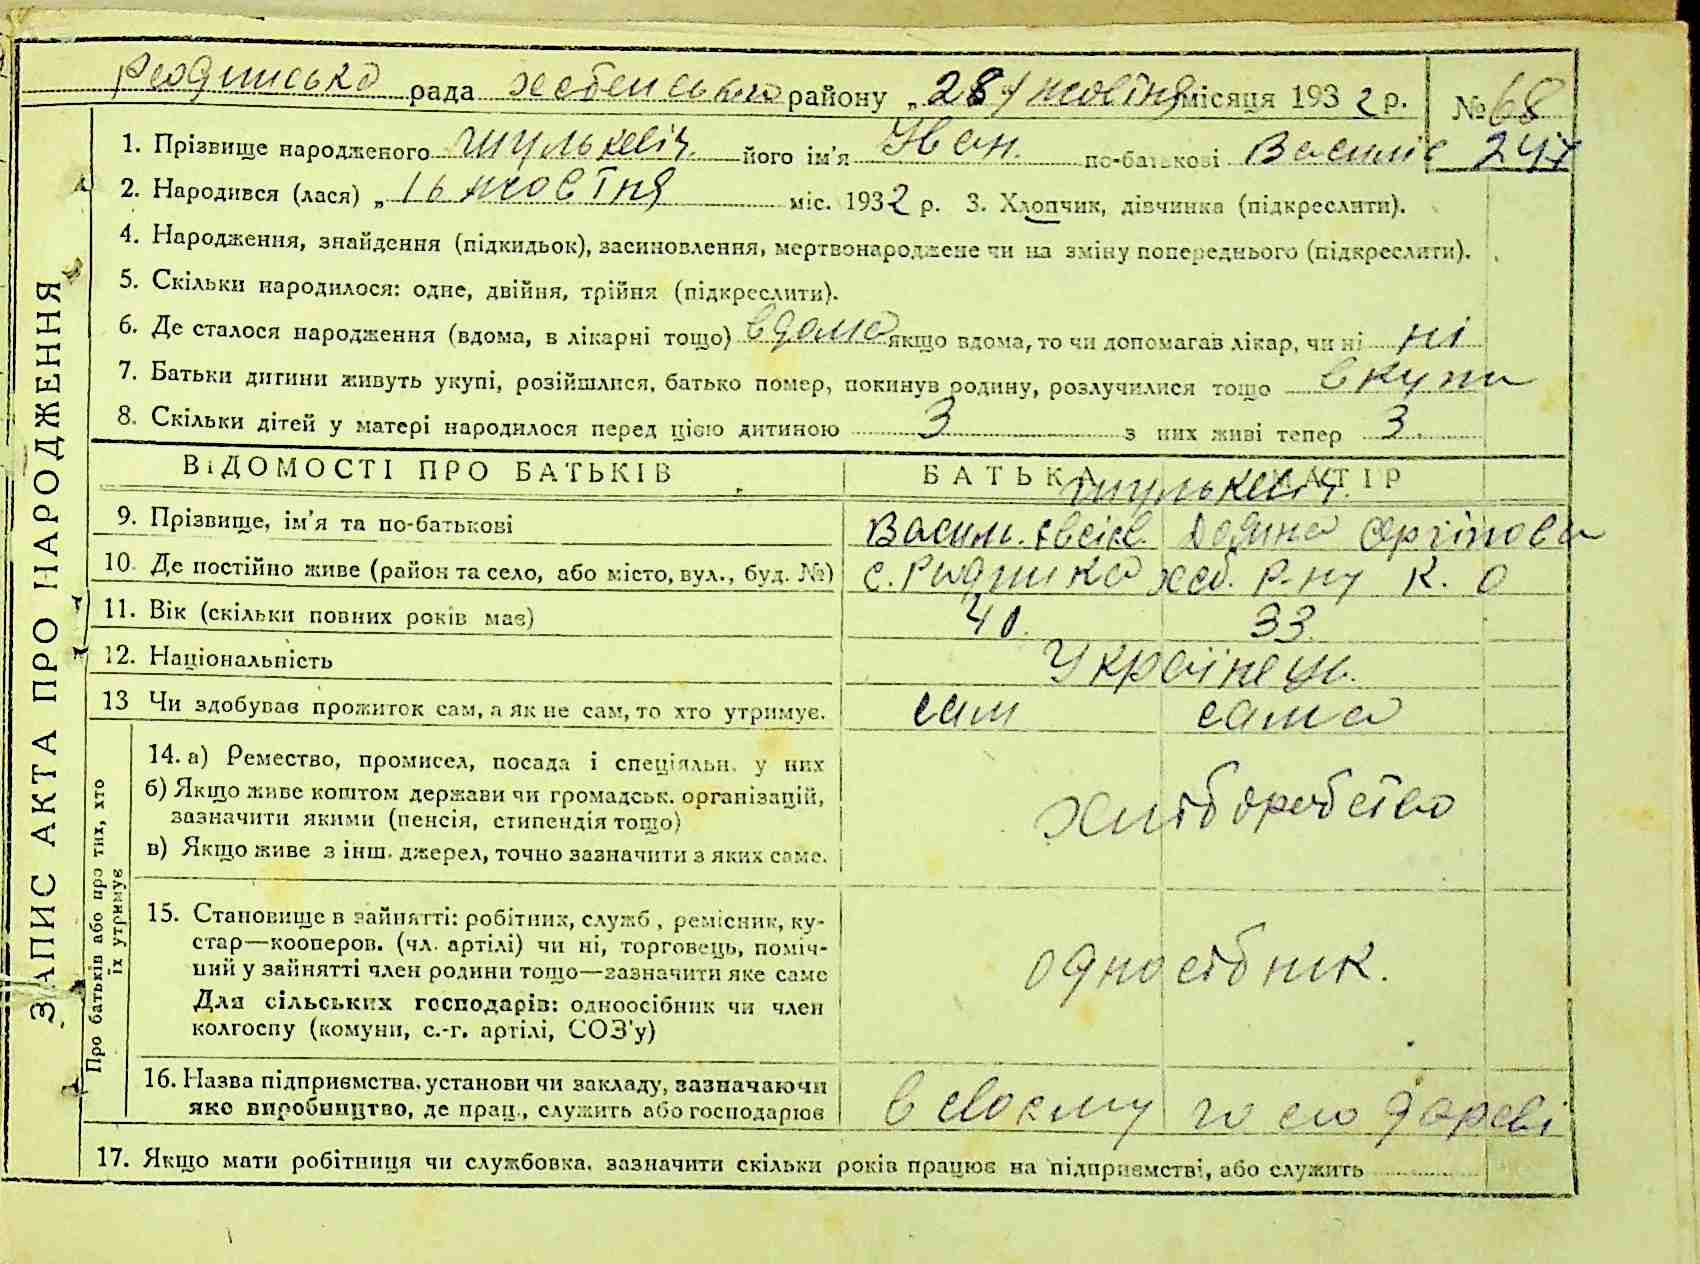 рада хабенського району „28" жовтня місяця 1932 р. № 68
1. Прізвище народженого його ім'я Іван. по-батькові Василів 247
2. Народився (лася) „16 жовтня міс. 1932 р. 3. Хлопчик, дівчинка (підкреслити).
4. Народження, знайдення (підкидьок), засиновлення, мертвонароджене чи на зміну попереднього (підкреслити).
5. Скільки народилося: одне, двійня, трійня (підкреслити).
6. Де сталося народження (вдома, в лікарні тощо) вдома якщо вдома, то чи допомагав лікар, чи ні ні
7. Батьки дитини живуть укупі, розійшлися, батько помер, покинув родину, розлучилися тощо вкупи
8. Скільки дітей у матері народилося перед цією дитиною 3 з них живі тепер 3.
ВІДОМОСТІ ПРО БАТЬКІВ БАТЬКА МАТІР
9. Прізвище, ім'я та по-батькові Васил.
10. Де постійно живе (район та село, або місто, вул., буд. №) с. хаб. р-ну к. о
11. Вік (скільки повних років має) 40. 33.
12. Національність Українець.
13 Чи здобував прожиток сам, а як не сам, то хто утримує. сам сама
14. а) Ремество, промисел, посада і спеціяльн. у них
б) Якщо живе коштом держави чи громадськ. організацій,
зазначити якими (пенсія, стипендія тощо) хліборобство
в) Якщо живе з інш. джерел, точно зазначити з яких саме.
15. Становище в зайнятті: робітник, служб, ремісник, ку-
стар—кооперов. (чл. артілі) чи ні, торговець, поміч-
ний у зайнятті член родини тощо—зазначити яке саме одноосібник.
Для сільських господарів: одноосібник чи член
колгоспу (комуни, с.-г. артілі, СОЗ'у)
16. Назва підприємства, установи чи закладу, зазначаючи
яке виробництво, де прац., служить або господарює в своєму господарсві
17. Якщо мати робітниця чи службовка, зазначити скільки років працює на підприємстві, або служить
ЗАПИС АКТА ПРО НАРОДЖЕННЯ
Про батьків або про тих, хто
їх утримує